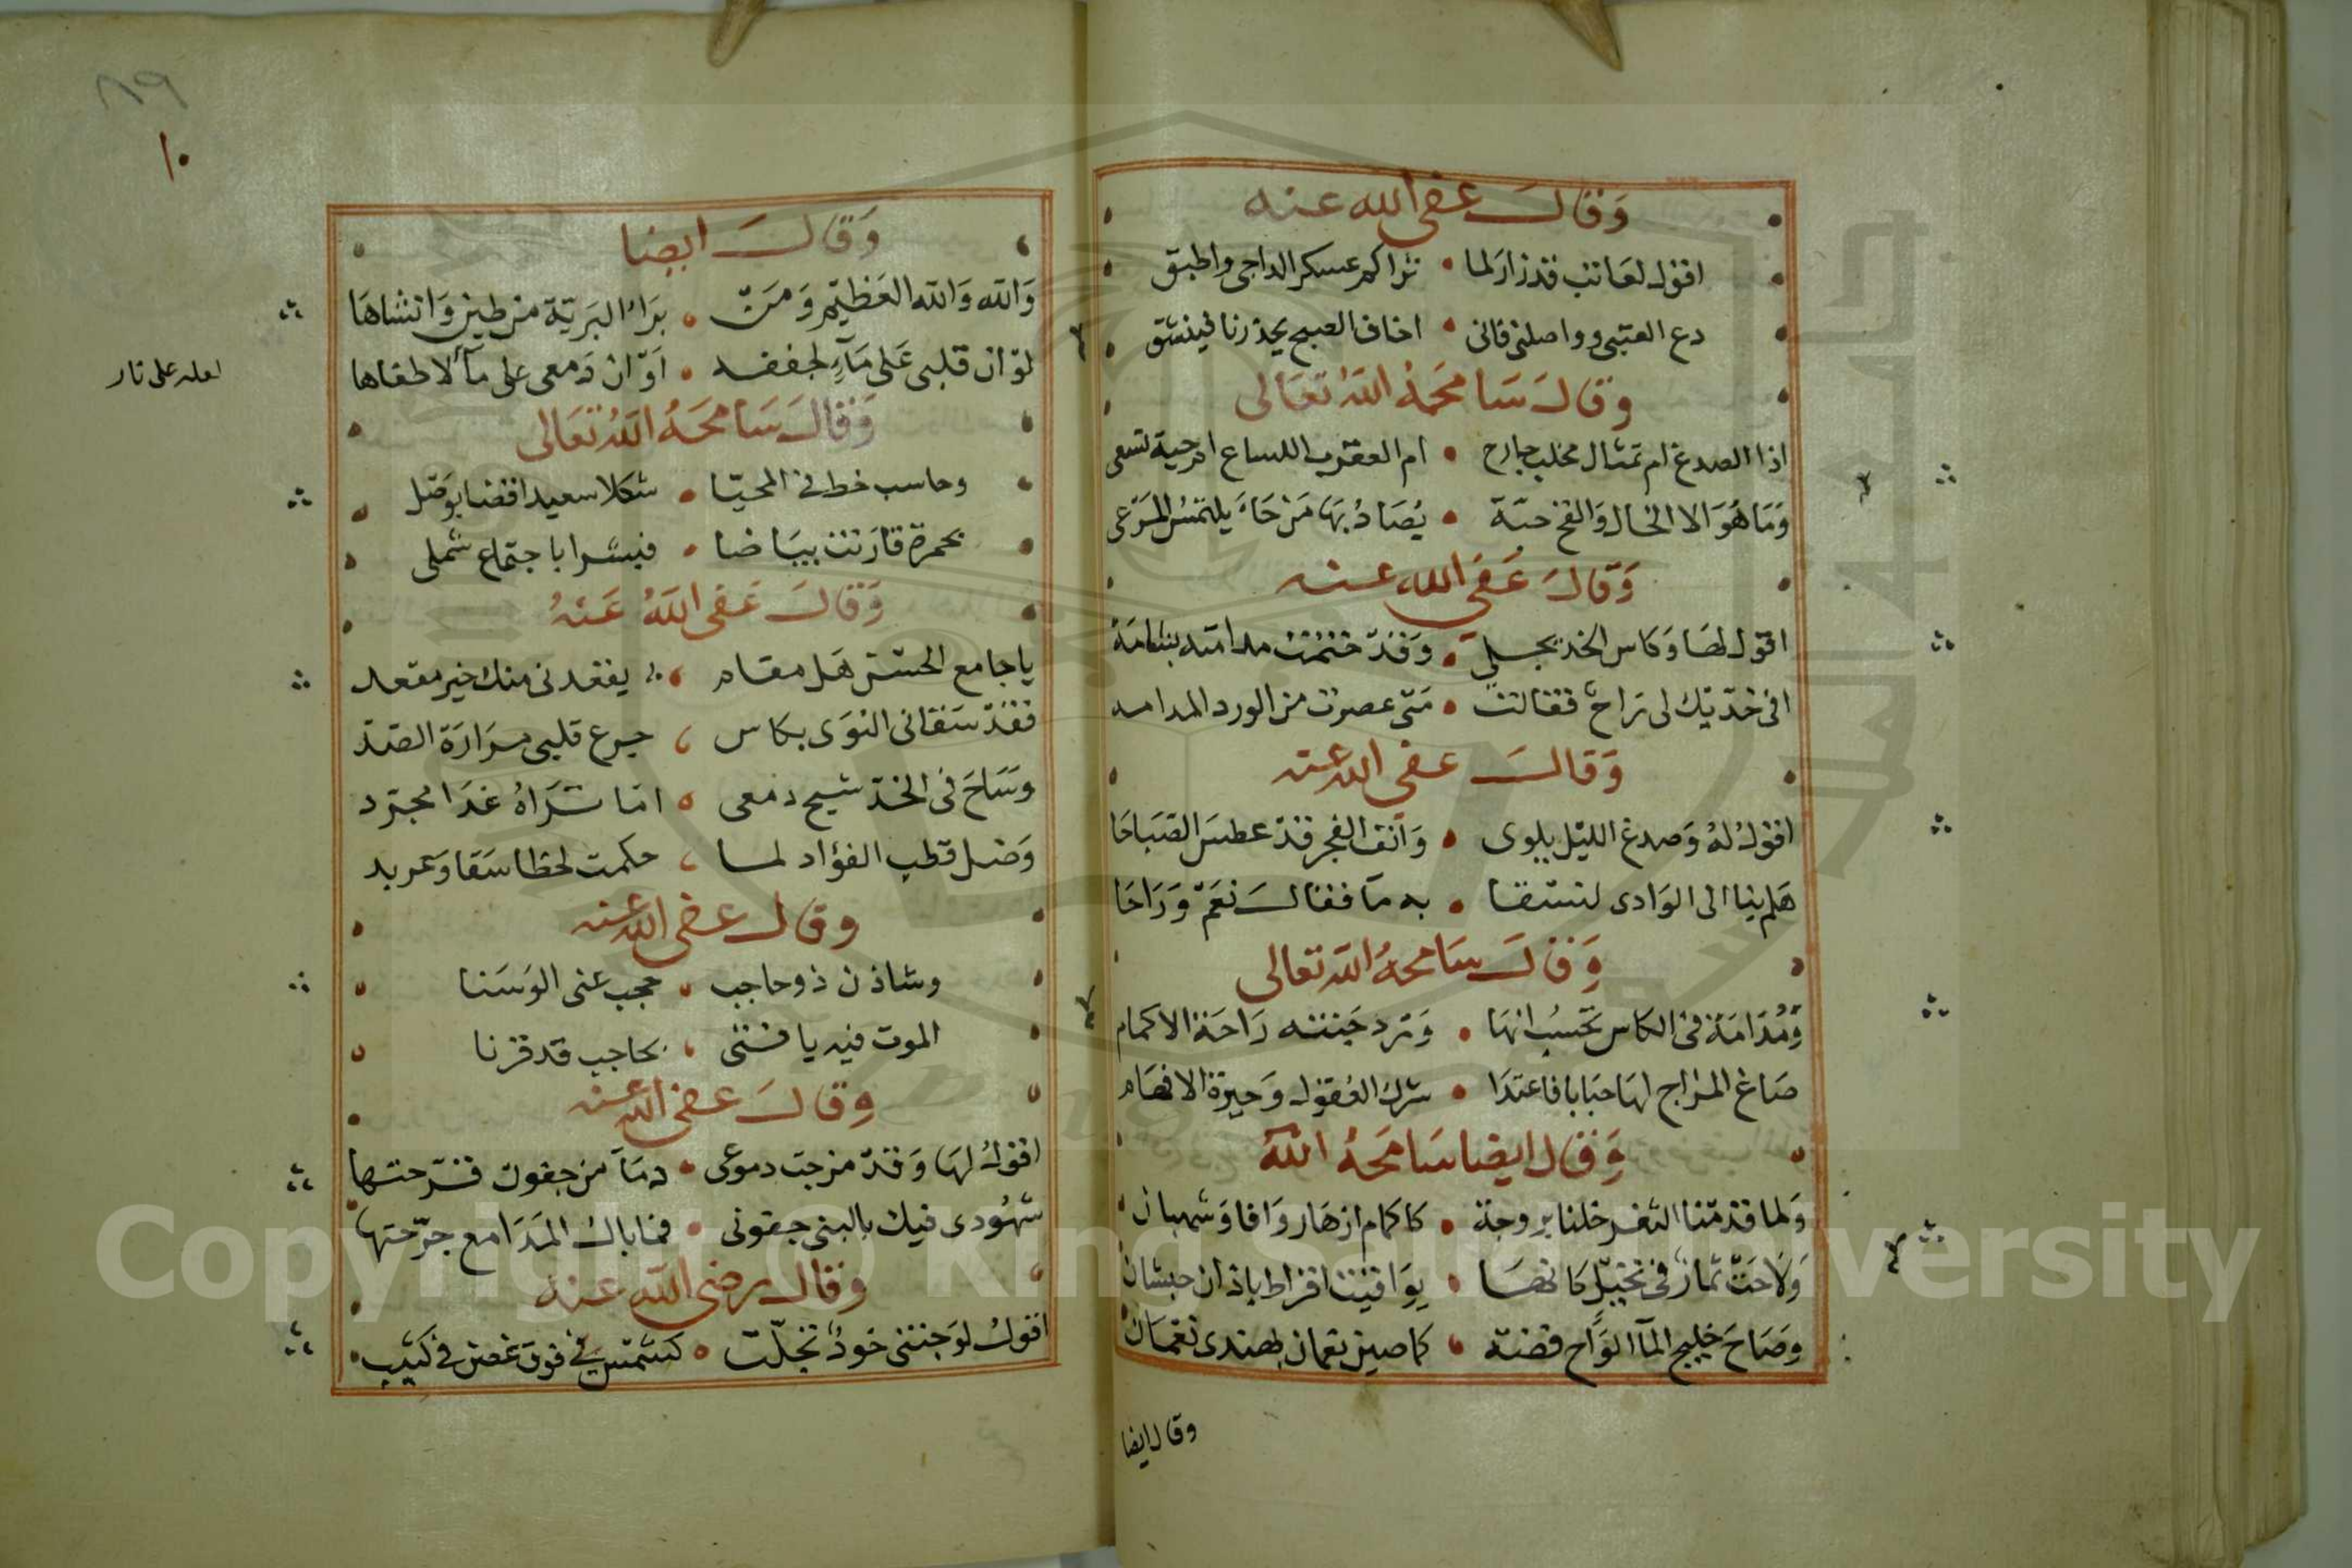 وَقَالَ عفى الله عنه
اقول لعاتب قد زار لما • تراكم عسكر الداجى واطبق
دع العتبى وواصلنى فانى • اخاف الصبح يحذرنا فينشق
وقال سَامحَهُ اللَهُ تعَالى
اذا الصدغ ام تمثال مخلب جارح • ام العقرب اللساع ام حية تسعى
وَمَا هُوَ الا الخال وَالفخ حبّة • يُصَادُ بهَا مَن جَاءَ يلتمسُ المَرْعى
وَقَالَ عَفى الله عنه
اقول لهَا وَكاس الخد يجلى • وَقَدْ ختمت مدامته بشامَهْ
افى خدّيك لى رَاحٌ فقالت • مَتى عصرت من الورد المدامه
وَقَالَ عفى الله عنه
اقولُ لهُ وَصدغ الليْل يلوى • وَانف الفجر قدْ عطسَ الصَبَاحَا
هَلم بنا الى الوَادى لنستقا • به مآ فقالَ نعَمْ وَرَاحَا
وَقَالَ سَامحهُ الله تعالى
وَمُدَامَة فى الكاس تحسَبُ انهَا • وَرد جَنته رَاحَة الاكمام
صَاغ المزاج لهَا حبَابا فاغتدَا • شرك العُقول وَحيرة الافهَام
وَقال ايضا سَامحَهُ اللهُ
وَلما قدمْنا الثغر خلنا بروجهُ • كاكمام ازهار وَافاق شهبان
وَلَاحَتْ ثمارٌ فى نخيل كانهَا • يوَاقيت اقراط باذان حبشان
وَصَاحَ خليج المآ الوَاح فضة •
وقال ايضا
٨٩
١٠
وَقَالَ ايضا
وَالله وَالله العَظيْم وَمَنْ • برَاءُ البَريّة من طين وَانشاهَا
لوْ ان قلبى عَلى مَآءٍ لجففه • اَوْ ان دَمعى على مآ لاطفاها
لعله على نار
وَقَالَ سَامحَهُ اللهُ تعَالى
وحاسب خط فى المحيّا • شكلا سعيدا قضا بوَصْل
بحمرة قارَنت بيَاضا • فبشرا باجتماع شملى
وَقَالَ عَفى اللَهُ عَنْهُ
يا جامع الحسْن هَل مقام • يقعدنى منك خير مقعد
فقدْ سَقانى النوَى بكاس • جرع قلبى مرَارَة الصّد
وَسَاحَ فى الخدّ شيح دمعى • اما تَرَاهُ غدَا مجرّد
وَضل قطب الفؤاد لما • حكمت لحظا سَقا وَعربد
وقال عفى الله عنه
وشاذن ذو حاجب • حجب عنى الوَسَنا
الموت فيه يا فتى • بحاجب قد قرنا
وقالَ عفى الله عنه
اقولُ لهَا وَقدْ مزجت دموعى • دمَآ من جفون قرّحتها
شهُودى فيك بالبنى جفونى • فما بال المَدَامع جرّحتها
وقال رضى الله عنه
اقولُ لوَجنتى خودٌ تجلّت • كشمْس فى فوق غصن فى كثيب